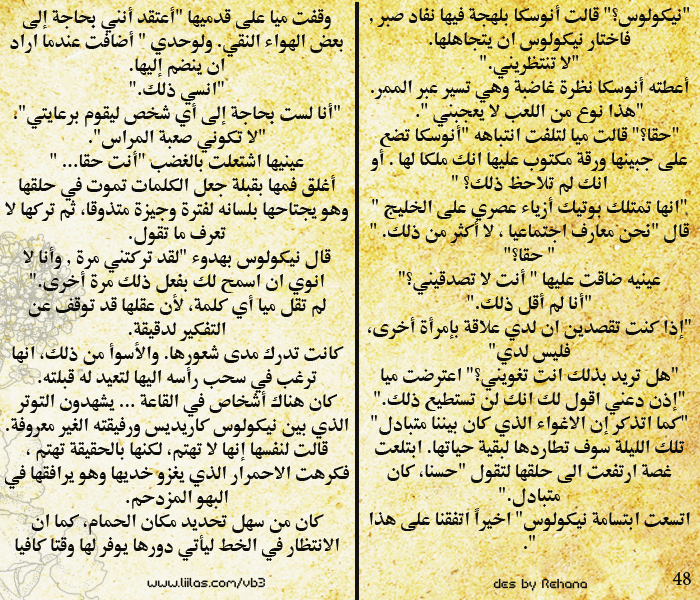 "نيكولوس؟" قالت أنوسكا بلهجة فيها نفاد صبر ,
فاختار نيكولوس ان يتجاهلها.
"لا تنتظريني."
أعطته أنوسكا نظرة غاضبة وهي تسير عبر الممر.
"هذا نوع من اللعب لا يعجبني ".
"حقا؟" قالت ميا لتلفت انتباهه "أنوسكا تضع
على جبينها ورقة مكتوب عليها انك ملكا لها . أو
انك لم تلاحظ ذلك؟ "
"انها تمتلك بوتيك أزياء عصري على الخليج "
قال "نحن معارف اجتماعيا ، لا أكثر من ذلك. "
" حقا؟"
عينيه ضاقت عليها " أنت لا تصدقيني؟"
"أنا لم أقل ذلك."
"إذا كنت تقصدين ان لدي علاقة بإمرأة أخرى،
فليس لدي"
"هل تريد بذلك انت تغويني؟" اعترضت ميا
"إذن دعني اقول لك انك لن تستطيع ذلك."
"كما اتذكر إن الاغواء الذي كان بيننا متبادل"
تلك الليلة سوف تطاردها لبقية حياتها. ابتلعت
غصة ارتفعت الى حلقها لتقول "حسنا، كان
متبادل."
اتسعت ابتسامة نيكولوس" اخيراً اتفقنا على هذا
."
48
des by Rehana
وقفت ميا على قدميها "أعتقد أنني بحاجة إلى
بعض الهواء النقي. ولوحدي " أضافت عندما اراد
ان ينضم إليها.
"انسي ذلك."
"أنا لست بحاجة إلى أي شخص ليقوم برعايتي"،
"لا تكوني صعبة المراس".
عينيها اشتعلت بالغضب "أنت حقا... "
أغلق فمها بقبلة جعل الكلمات تموت في حلقها
وهو يجتاحها بلسانه لفترة وجيزة متذوقا، ثم تركها لا
تعرف ما تقول.
قال نيكولوس بهدوء "لقد تركتني مرة , وأنا لا
انوي ان اسمح لك بفعل ذلك مرة أخرى."
لم تقل ميا أي كلمة، لأن عقلها قد توقف عن
التفكير لدقيقة.
كانت تدرك مدى شعورها. والأسوأ من ذلك، انها
ترغب في سحب رأسه اليها لتعيد له قبلته.
كان هناك أشخاص في القاعة ... يشهدون التوتر
الذي بين نيكولوس كاريديس ورفيقته الغير معروفة.
قالت لنفسها إنها لا تهتم، لكنها بالحقيقة تهتم ،
فكرهت الاحمرار الذي يغزو خديها وهو يرافقها في
البهو المزدحم.
كان من سهل تحديد مكان الحمام، كما ان
الانتظار في الخط ليأتي دورها يوفر لها وقتا كافيا
www.liilas.com/vb3